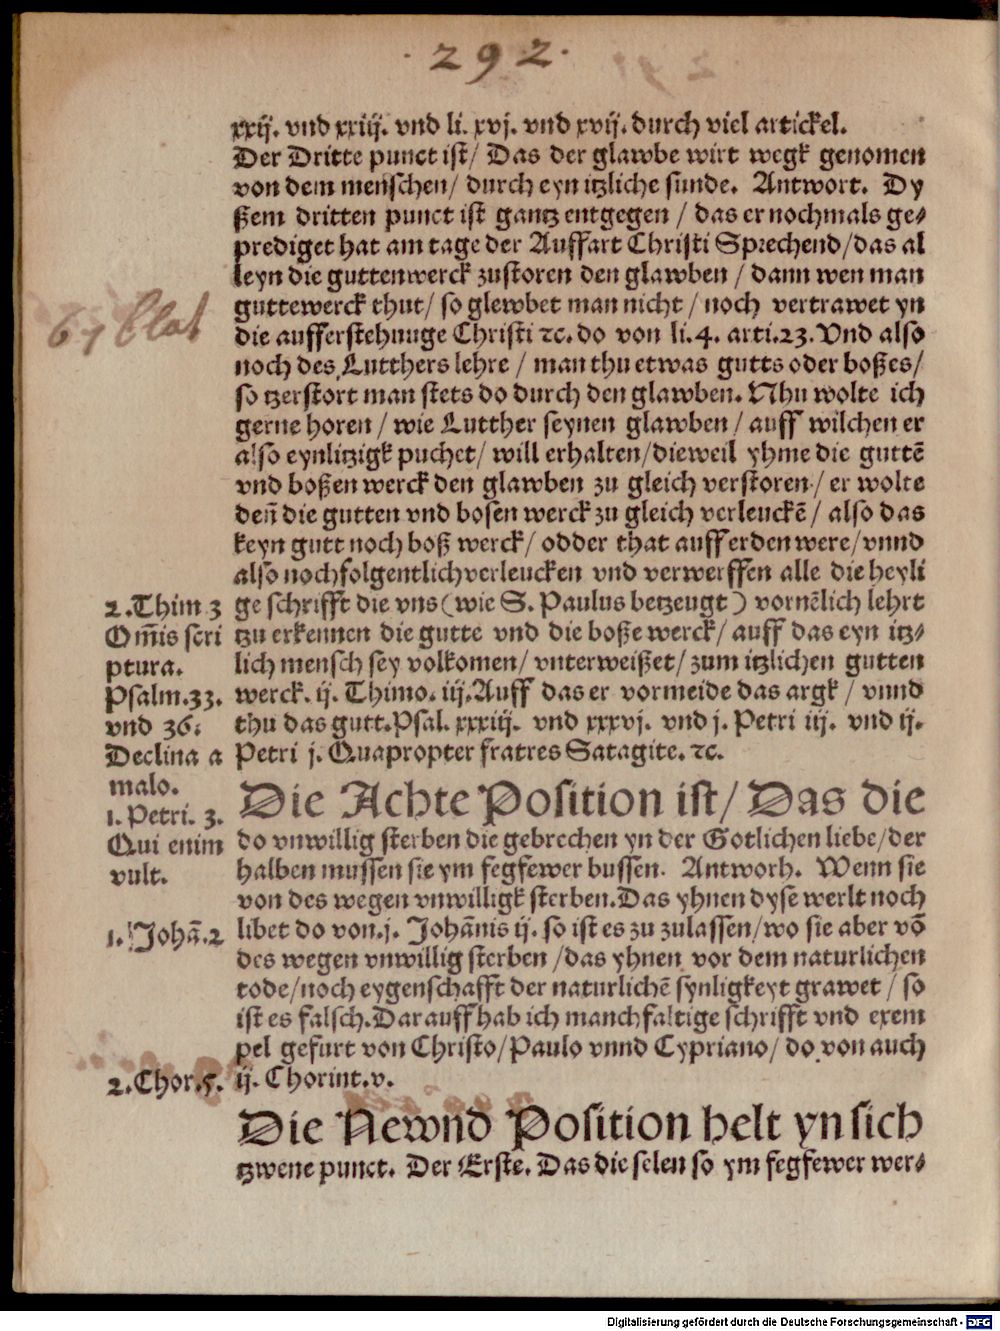 · 292 ·
xxij. vnd xxiij. vnd li. xvj. vnd xvij. durch viel artickel.
Der Dritte punct ist/ Das der glawbe wirt wegk genomen
von dem menschen/ durch eyn itzliche sunde. Antwort. Dy
ßem dritten punct ist gantz entgegen / das er nochmals ge⸗
prediget hat am tage der Auffart Christi Sprechend/das al
leyn die guttenwerck zustoren den glawben / dann wen man
guttewerck thut/ so glewbet man nicht / noch vertrawet yn
die aufferstehnuge Christi ⁊c. do von li. 4. arti. 23. Vnd also
noch des Lutthers lehre / man thu etwas gutts oder boßes/
so tzerstort man stets do durch den glawben. Nhu wolte ich
gerne horen / wie Lutther seynen glawben / auff wilchen er
also eynlitzigk puchet/ will erhalten/dieweil yhme die guttē
vnd boßen werck den glawben zu gleich verstoren / er wolte
deñ die gutten vnd bosen werck zu gleich verleuckē / also das
keyn gutt noch boß werck/ odder that auff erden were/vnnd
also nochfolgentlich verleucken vnd verwerffen alle die heyli
ge schrifft die vns (wie S. Paulus betzeugt) vornēlich lehrt
tzu erkennen die gutte vnd die boße werck/ auff das eyn itz⸗
lich mensch sey volkomen/ vnterweißet/ zum itzlichen gutten
werck. ij. Thimo. iij. Auff das er vormeide das argk / vnnd
thu das gutt. Psal. xxxiij. vnd xxxvj. vnd j. Petri iij. vnd ij.
Petri j. Quapropter fratres Satagite. ⁊c.
Die Achte Position ist/ Das die
do vnwillig sterben die gebrechen yn der Gotlichen liebe/der
halben mussen sie ym fegfewer bussen. Antworh. Wenn sie
von des wegen vnwilligk sterben. Das yhnen dyse werlt noch
libet do von. j. Johānis ij. so ist es zu zulassen/wo sie aber vō
des wegen vnwillig sterben /das yhnen vor dem naturlichen
tode/noch eygenschafft der naturlichē synligkeyt grawet / so
ist es falsch. Dar auff hab ich manchfaltige schrifft vnd exem
pel gefurt von Christo/ Paulo vnnd Cypriano/ do von auch
ij. Chorint. v.
Die Newnd Position helt yn sich
tzwene punct. Der Erste. Das die selen so ym fegfewer wer⸗
67 blat
2. Thim 3
Om̄is scri
ptura.
Psalm. 33.
vnd 36.
Declina a
malo.
1. Petri. 3.
Qui enim
vult.
1. Johā. 2
2. Chor. 5.
Digitalisierung gefördert durch die Deutsche Forschungsgemeinschaft - DFG